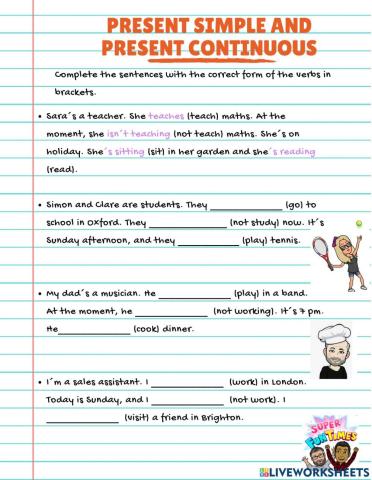 PRESENT SIMPLE AND
PRESENT CONTINUOUS
Complete the sentences with the correct form of the verbs in
brackets.
• Sara´s a teacher. She teaches (teach) maths. At the
moment, she isn´t teaching (not teach) maths. She´s on
holiday. She´s sitting (sit) in her garden and she´s reading
(read).
• Simon and Clare are students. They ____________ (go) to
school in Oxford. They ____________ (not study) now. It´s
Sunday afternoon, and they ____________ (play) tennis.
• My dad´s a musician. He ____________ (play) in a band.
At the moment, he ____________ (not working). It´s 7 pm.
He____________ (cook) dinner.
• I´m a sales assistant. I ____________ (work) in London.
Today is Sunday, and I ____________ (not work). I
____________ (visit) a friend in Brighton.
SUPER
FUNTIMES
LIVEWORKSHEETS